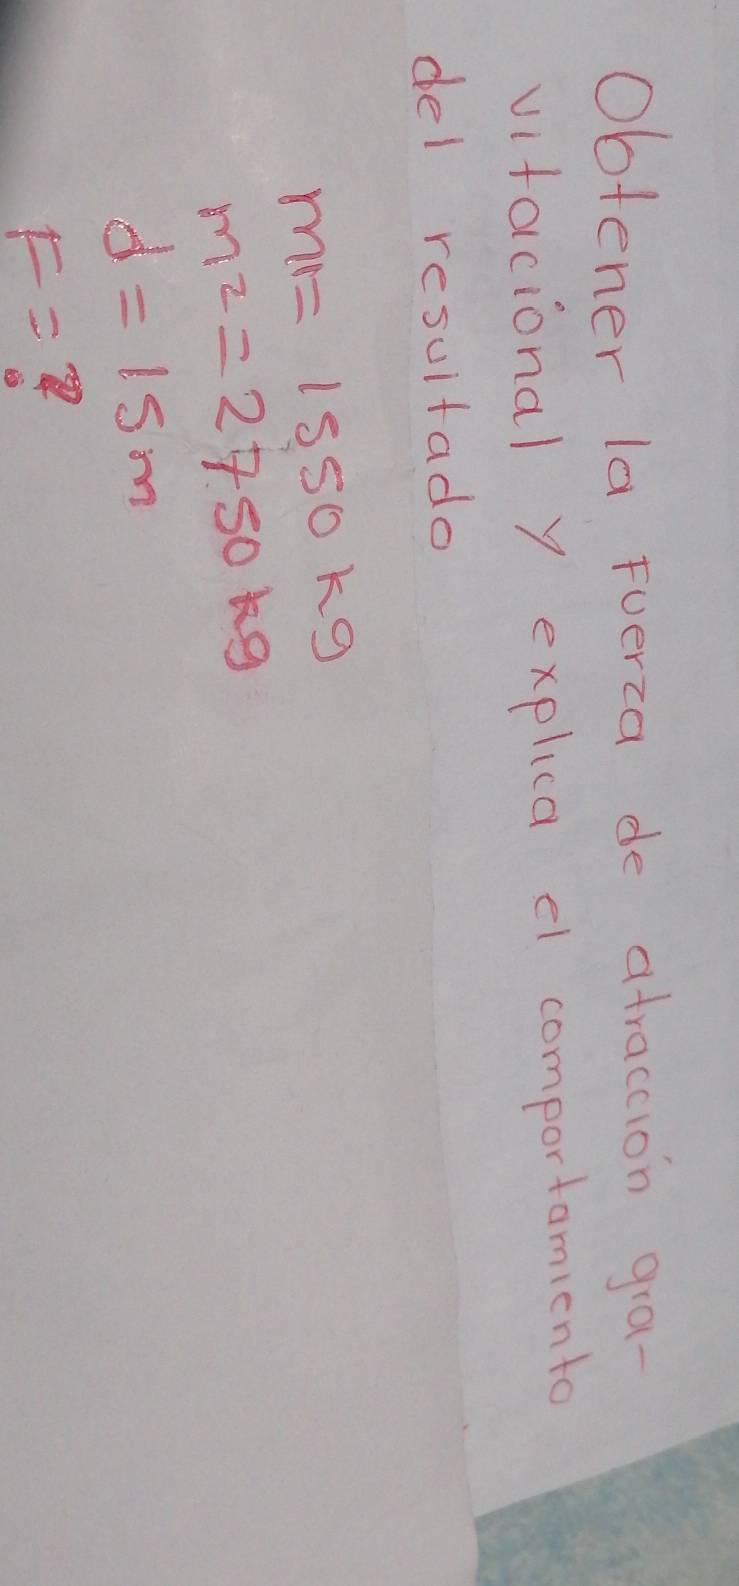 Obtener la Fuerza de atracción gra-
vitacional y explica el comportamiento
del resultado
m1= 1550 kg
m2= 2750 kg
d = 15m
F = ?